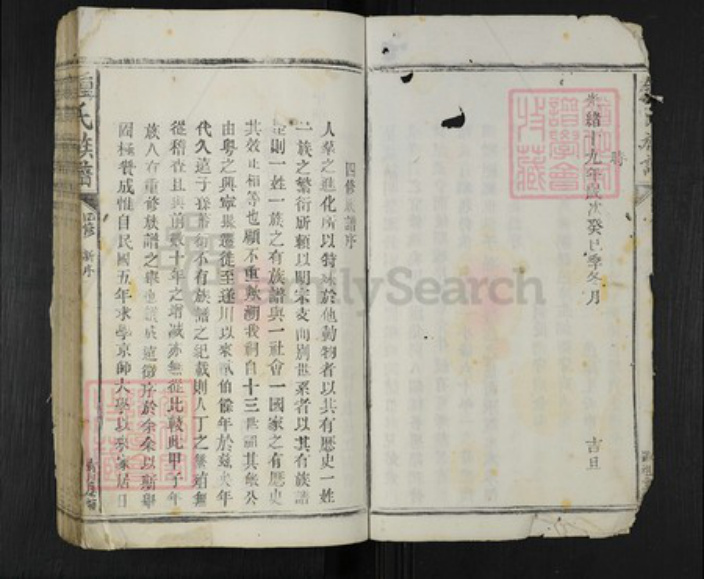 時
光緒十九年歲次癸巳季冬月 吉旦
四修族譜序
人羣之進化所以特殊於他動物者以其有歷史一姓
一族之繁衍所賴以明宗支而別世系者以其有族譜
則一姓一族之有族譜與一社會一國家之有歷史
其效正相等也顧不重歟溯我祠自十三世祖其 公
由粵之興寧縣遷徙至遂川以來貳伯餘年於茲矣年
代久遠子孫蕃衍不有族譜之紀載則人丁之繁殖無
從稽查且與前數十年之增減亦無從比較此甲子年
族人有重修族譜之舉也譜成遠徵序於余余以斯舉
極贊成惟自民國五年求學京師大學以來家居日
鍾氏族譜 四修 新序
FamilySearch